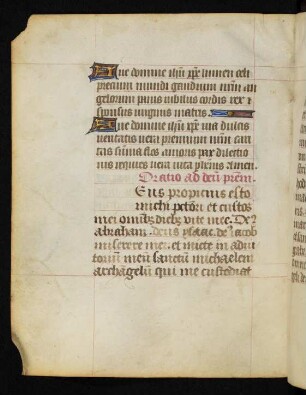 Aue domine ihu xpe lumen celi
precium mundi gaudium nrm an
gelorum panis iubilus cordis rex et
sponsus uirginis matris.
Aue domine ihu xpe uia dulcis
ueritas uera premium nrm cari
tas suma fons amoris pax dulcedo
requies uera uita perennis Amen.
Oratio ad deu prem.
Eus propicius esto
michi pctori et custos
mei omibz diebz vite mee. De9
abraham. deus ysaac. de9 iacob
miserere mei. et micte in adiu
torium meu sanctum michaelem
archagelu qui me custodiat